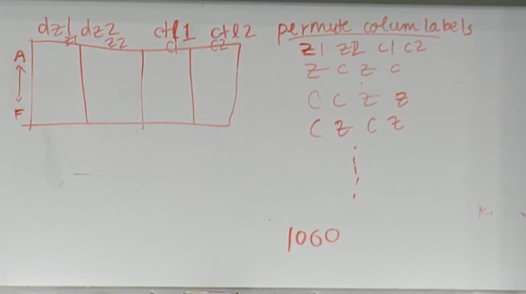 dz1 dz2 ctl1 ctl2
z1 z2 c1 c2
A
F
permute column labels
z1 z2 c1 c2
z c z c
c c z z
c z c z
1060